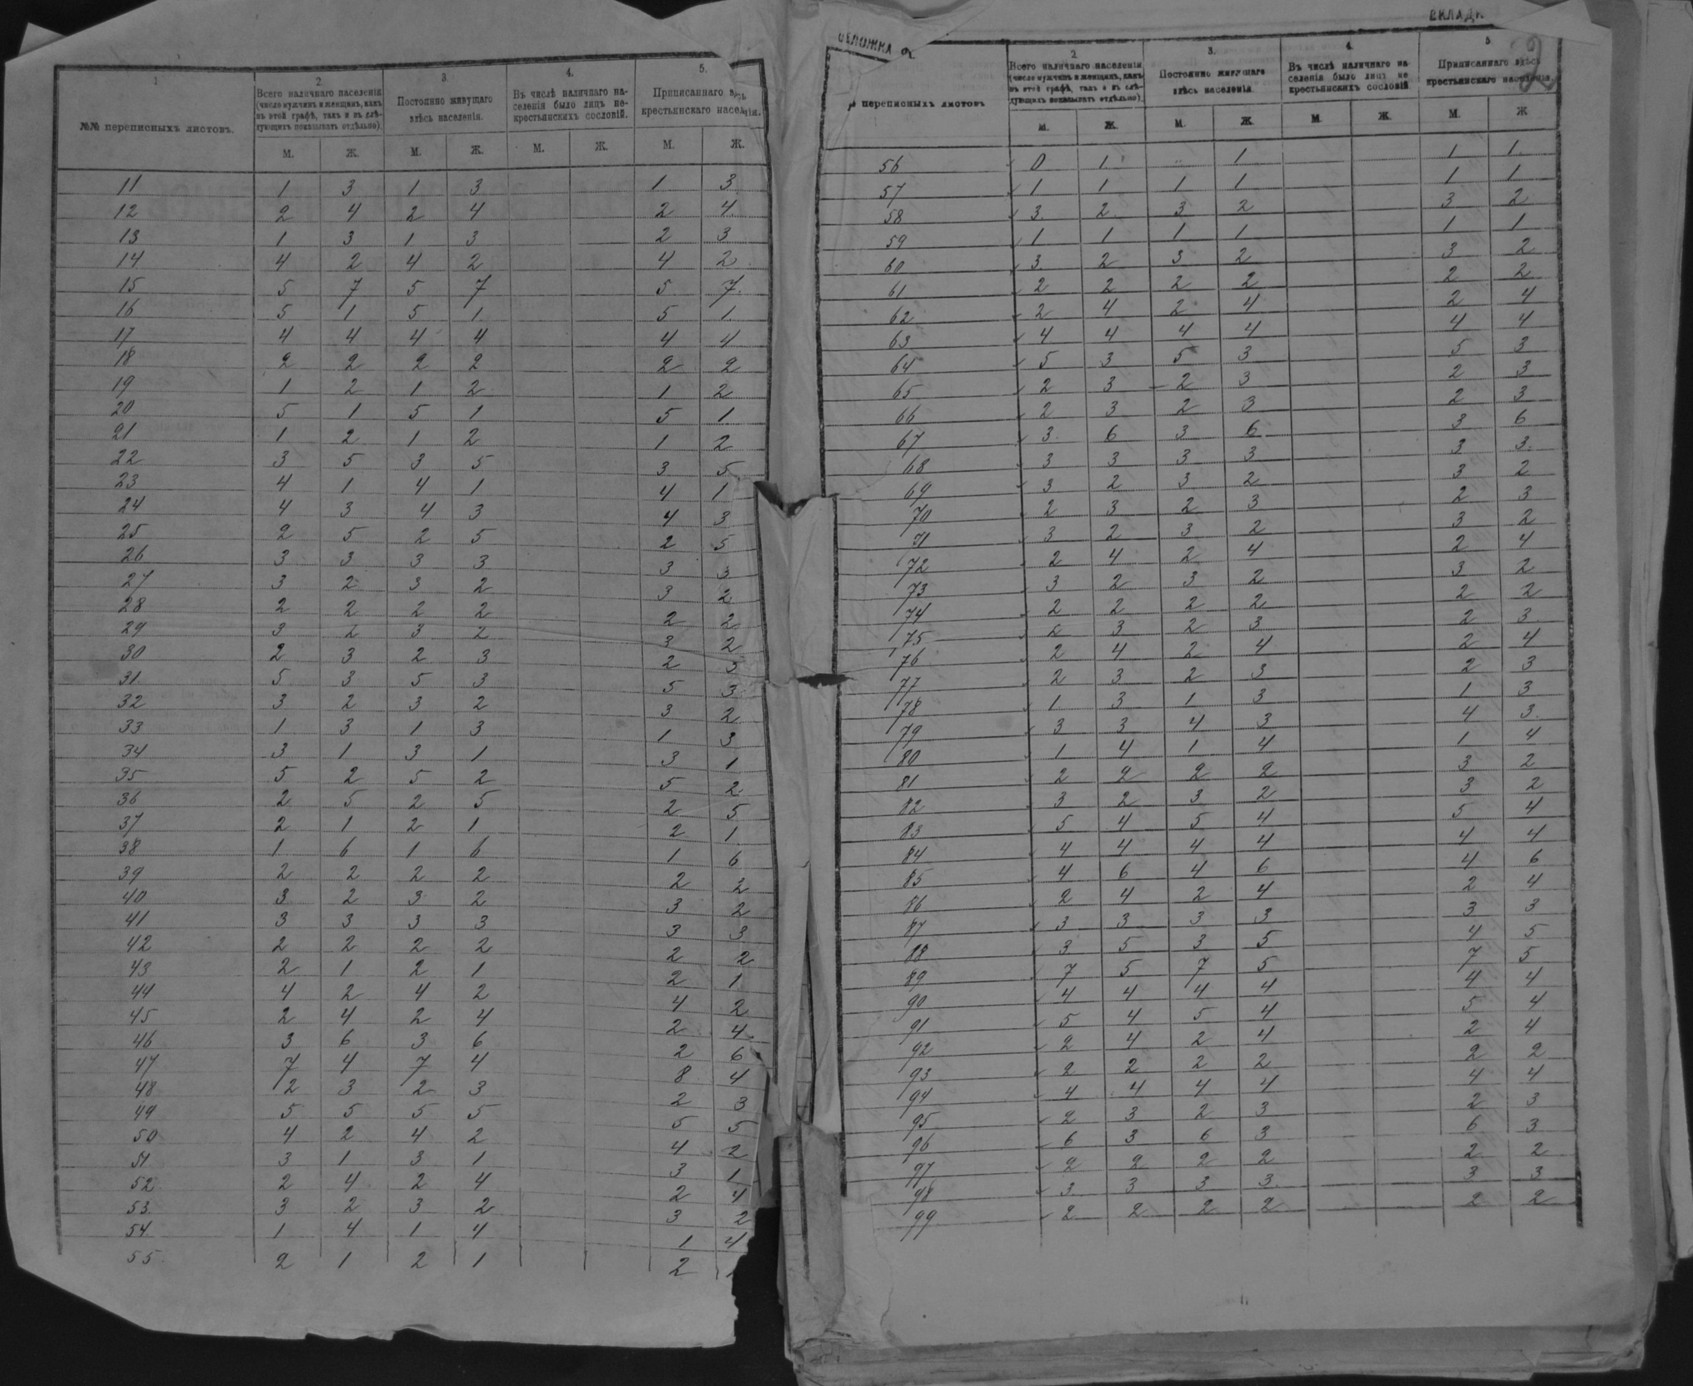 1. 2. 3. 4. 5.
№№ переписныхъ листовъ.
Всего наличнаго населенія (число мужчинъ и женщинъ, какъ въ этой графѣ, такъ и въ слѣдующихъ показывать отдѣльно).
Постоянно живущаго здѣсь населенія.
Въ числѣ наличнаго населенія было лицъ не-крестьянскихъ сословій.
Приписаннаго здѣсь крестьянскаго населенія.
М. Ж. М. Ж. М. Ж. М. Ж.
11 1 3 1 3 1 3
12 2 4 2 4 2 4
13 1 3 1 3 2 3
14 4 2 4 2 4 2
15 5 7 5 7 5 7
16 5 1 5 1 5 1
17 4 4 4 4 4 4
18 2 2 2 2 2 2
19 1 2 1 2 1 2
20 5 1 5 1 5 1
21 1 2 1 2 1 2
22 3 5 3 5 3 5
23 4 1 4 1 4 1
24 4 3 4 3 4 3
25 2 5 2 5 2 5
26 3 3 3 3 3 3
27 3 2 3 2 3 2
28 2 2 2 2 2 2
29 3 2 3 2 3 2
30 2 3 2 3 2 3
31 5 3 5 3 5 3
32 3 2 3 2 3 2
33 1 3 1 3 1 3
34 3 1 3 1 3 1
35 5 2 5 2 5 2
36 2 5 2 5 2 5
37 2 1 2 1 2 1
38 1 6 1 6 1 6
39 2 2 2 2 2 2
40 3 2 3 2 3 2
41 3 3 3 3 3 3
42 2 2 2 2 2 2
43 2 1 2 1 2 1
44 4 2 4 2 4 2
45 2 4 2 4 2 4
46 3 6 3 6 2 6
47 7 4 7 4 8 4
48 2 3 2 3 2 3
49 5 5 5 5 5 5
50 4 2 4 2 4 2
51 3 1 3 1 3 1
52 2 4 2 4 2 4
53 3 2 3 2 3 2
54 1 4 1 4 1 4
55 2 1 2 1 2
ОБЛОЖКА
ВКЛАДН
2
2. 3. 4. 5
переписныхъ листовъ
Всего наличнаго населенія (число мужчинъ и женщинъ, какъ въ этой графѣ, такъ и въ слѣдующихъ показывать отдѣльно).
Постоянно живущаго здѣсь населенія.
Въ числѣ наличнаго населенія было лицъ не крестьянскихъ сословій
Приписаннаго здѣсь крестьянскаго населенія
М. Ж. М. Ж. М. Ж. М. Ж
56 0 1 1 1 1
57 1 1 1 1 1 1
58 3 2 3 2 3 2
59 1 1 1 1 1 1
60 3 2 3 2 3 2
61 2 2 2 2 2 2
62 2 4 2 4 2 4
63 4 4 4 4 4 4
64 5 3 5 3 5 3
65 2 3 2 3 2 3
66 2 3 2 3 2 3
67 3 6 3 6 3 6
68 3 3 3 3 3 3
69 3 2 3 2 3 2
70 2 3 2 3 2 3
71 3 2 3 2 3 2
72 2 4 2 4 2 4
73 3 2 3 2 3 2
74 2 2 2 2 2 2
75 2 3 2 3 2 3
76 2 4 2 4 2 4
77 2 3 2 3 2 3
78 1 3 1 3 1 3
79 3 3 4 3 4 3
80 1 4 1 4 1 4
81 2 2 2 2 3 2
82 3 2 3 2 3 2
83 5 4 5 4 5 4
84 4 4 4 4 4 4
85 4 6 4 6 4 6
86 2 4 2 4 2 4
87 3 3 3 3 3 3
88 3 5 3 5 4 5
89 7 5 7 5 7 5
90 4 4 4 4 4 4
91 5 4 5 4 5 4
92 2 4 2 4 2 4
93 2 2 2 2 2 2
94 4 4 4 4 4 4
95 2 3 2 3 2 3
96 6 3 6 3 6 3
97 2 2 2 2 2 2
98 3 3 3 3 3 3
99 2 2 2 2 2 2